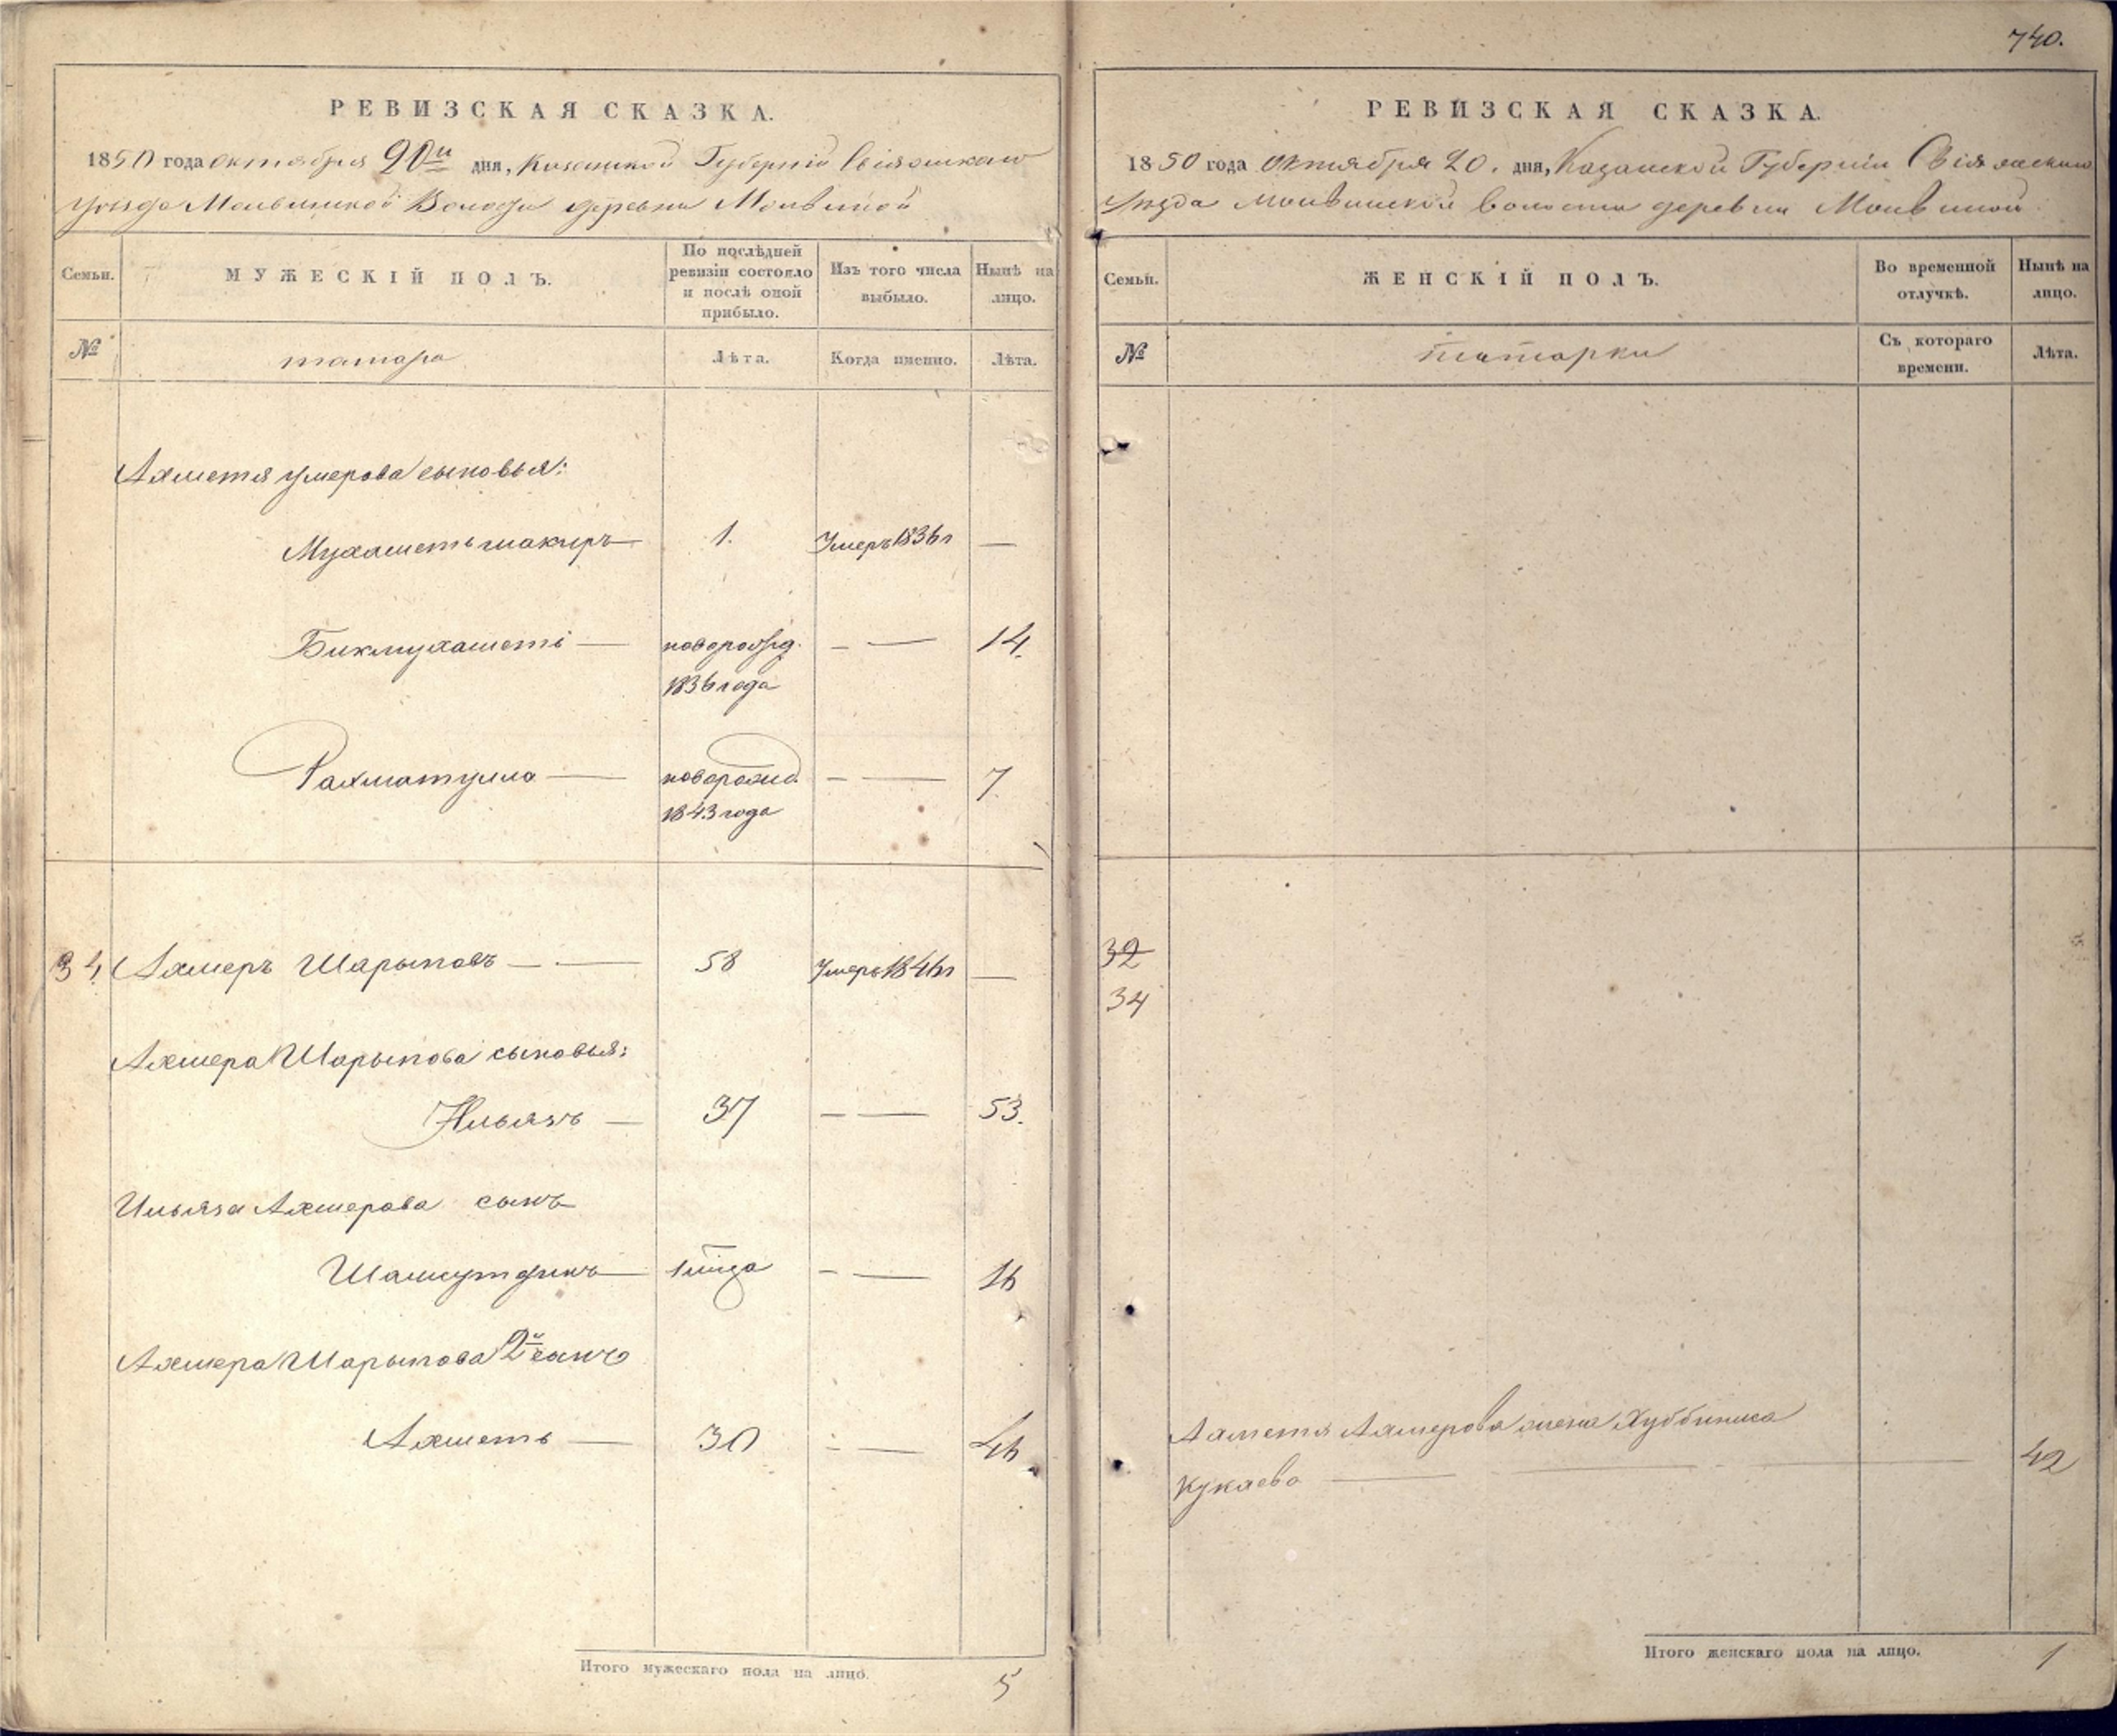 740.
РЕВИЗСКАЯ СКАЗКА.
1850 года октября 20 и дня, Казанской Губерніи Свіяжскаго
Уѣзда Молвинской Волости деревни Молвиной
Семьи. МУЖЕСКІЙ ПОЛЪ. По послѣдней ревизіи состояло и послѣ оной прибыло. Изъ того числа выбыло. Нынѣ на лицо.
№ татара Лѣта. Когда именно. Лѣта.
Ахметя Умерова сыновья:
Мухаметьшакиръ — 1. Умеръ 1836 г —
Бикмухаметь — новорожд. — — 14.
1836 года
Рахматулла — новорожд. — — 7.
1843 года
34. Ахмеръ Шарыповъ — — 58 Умеръ 1846 г —
Ахмера Шарыпова сыновья:
Ильязъ — 37 — — 53.
Ильяза Ахмерова сынъ
Шамсутдинъ — — — 16
Ахмера Шарыпова 2й сынъ
Ахметь — 30 — — 46
Итого мужескаго пола на лицо. 5
РЕВИЗСКАЯ СКАЗКА.
1850 года Октября 20. дня, Казанской Губерніи Свіяжскаго
Уѣзда Молвинской волости деревни Молвиной
Семьи. ЖЕНСКІЙ ПОЛЪ. Во временной отлучкѣ. Нынѣ на лицо.
№ татарки Съ котораго времени. Лѣта.
32
34
Ахметя Ахмерова жена Хуббиниса
Кукаева — — — 42
Итого женскаго пола на лицо. 1